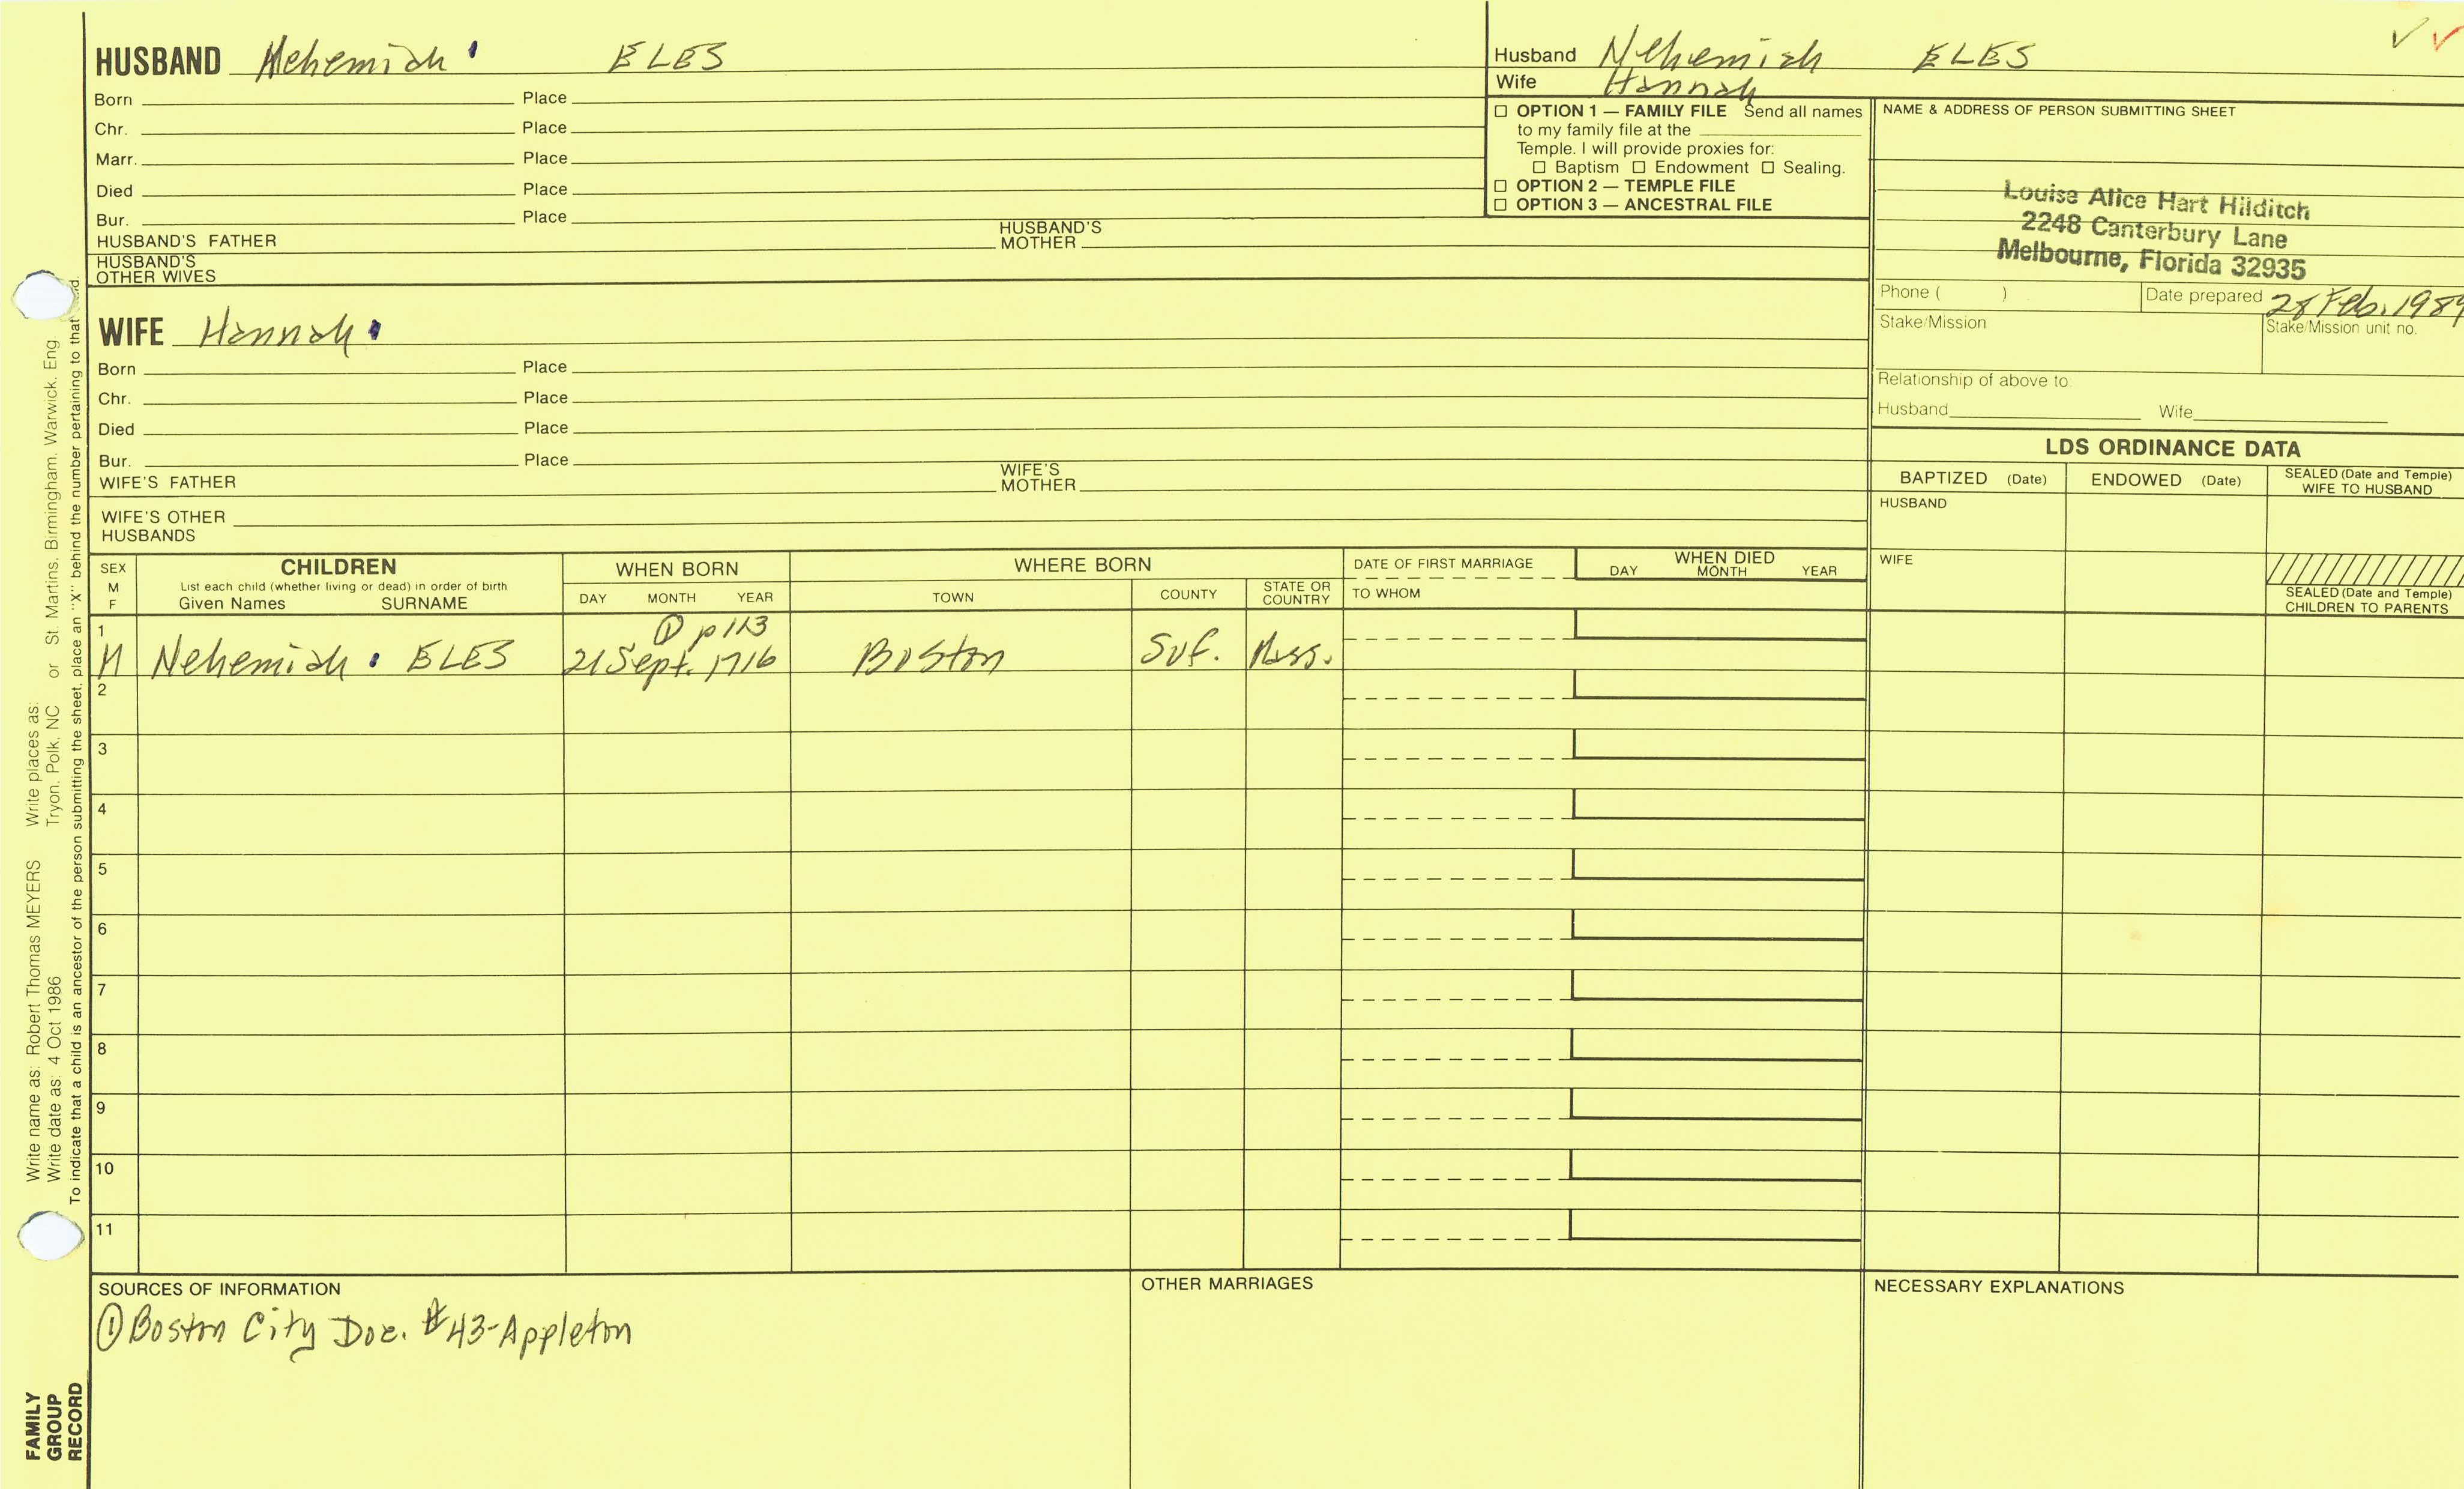 HUSBAND Nehemiah ELES
Born Place
Chr. Place
Marr. Place
Died Place
Bur. Place
HUSBAND'S FATHER HUSBAND'S MOTHER
HUSBAND'S OTHER WIVES
Husband Nehemiah ELES
Wife Hannah
☐ OPTION 1 — FAMILY FILE Send all names
to my family file at the
Temple. I will provide proxies for:
☐ Baptism ☐ Endowment ☐ Sealing.
☐ OPTION 2 — TEMPLE FILE
☐ OPTION 3 — ANCESTRAL FILE
NAME & ADDRESS OF PERSON SUBMITTING SHEET
Louise Alice Hart Hilditch
2248 Canterbury Lane
Melbourne, Florida 32935
Phone ( ) Date prepared 28 Feb. 1989
Stake/Mission Stake/Mission unit no.
Relationship of above to:
Husband Wife
WIFE Hannah
Born Place
Chr. Place
Died Place
Bur. Place
WIFE'S FATHER WIFE'S MOTHER
WIFE'S OTHER
HUSBANDS
LDS ORDINANCE DATA
BAPTIZED (Date) ENDOWED (Date) SEALED (Date and Temple) WIFE TO HUSBAND
HUSBAND
WIFE
SEALED (Date and Temple)
CHILDREN TO PARENTS
SEX M F
CHILDREN
List each child (whether living or dead) in order of birth
Given Names SURNAME
WHEN BORN
DAY MONTH YEAR
WHERE BORN
TOWN COUNTY STATE OR COUNTRY
DATE OF FIRST MARRIAGE
TO WHOM
WHEN DIED
DAY MONTH YEAR
1 ① p113
M Nehemiah ELES 21 Sept. 1716 Boston Suf. Mass.
2
3
4
5
6
7
8
9
10
11
SOURCES OF INFORMATION
① Boston City Doc. #43-Appleton
OTHER MARRIAGES
NECESSARY EXPLANATIONS
Write name as: Robert Thomas MEYERS Write places as:
Write date as: 4 Oct 1986 Tryon, Polk, NC or St. Martins, Birmingham, Warwick, Eng
To indicate that a child is an ancestor of the person submitting the sheet, place an "X" behind the number pertaining to that
FAMILY
GROUP
RECORD